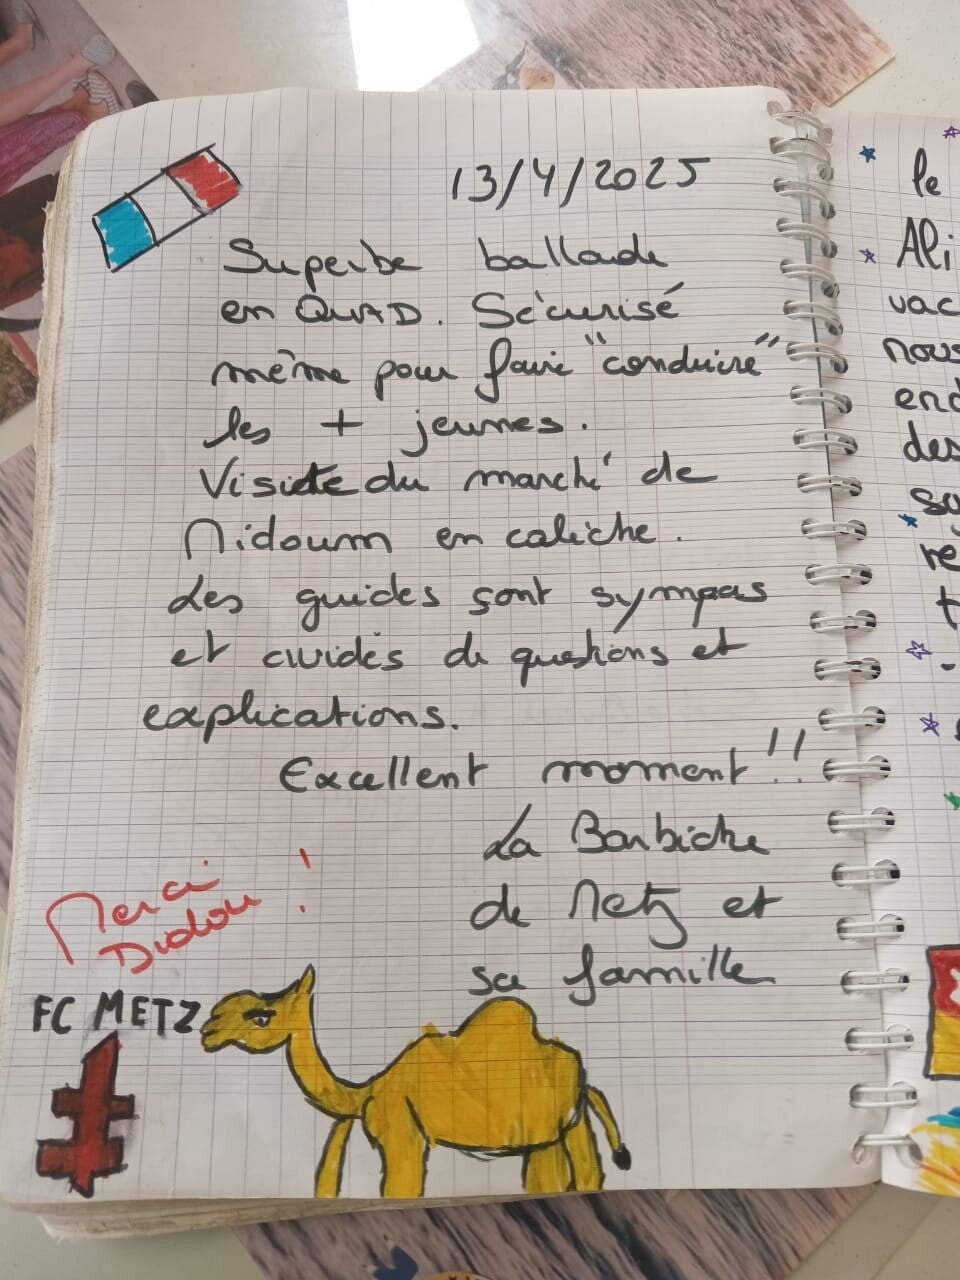 13/4/2025
Superbe ballade
en QUAD. Sécurisé
même pour faire "conduire"
les + jeunes.
Visite du marché de
Midoum en calèche.
Les guides sont sympas
et avides de questions et
explications.
Excellent moment !!
La Barbiche
de Metz et
sa famille
Merci
Didou !
FC METZ
le
Ali
vac
nous
end
des
so
re
t